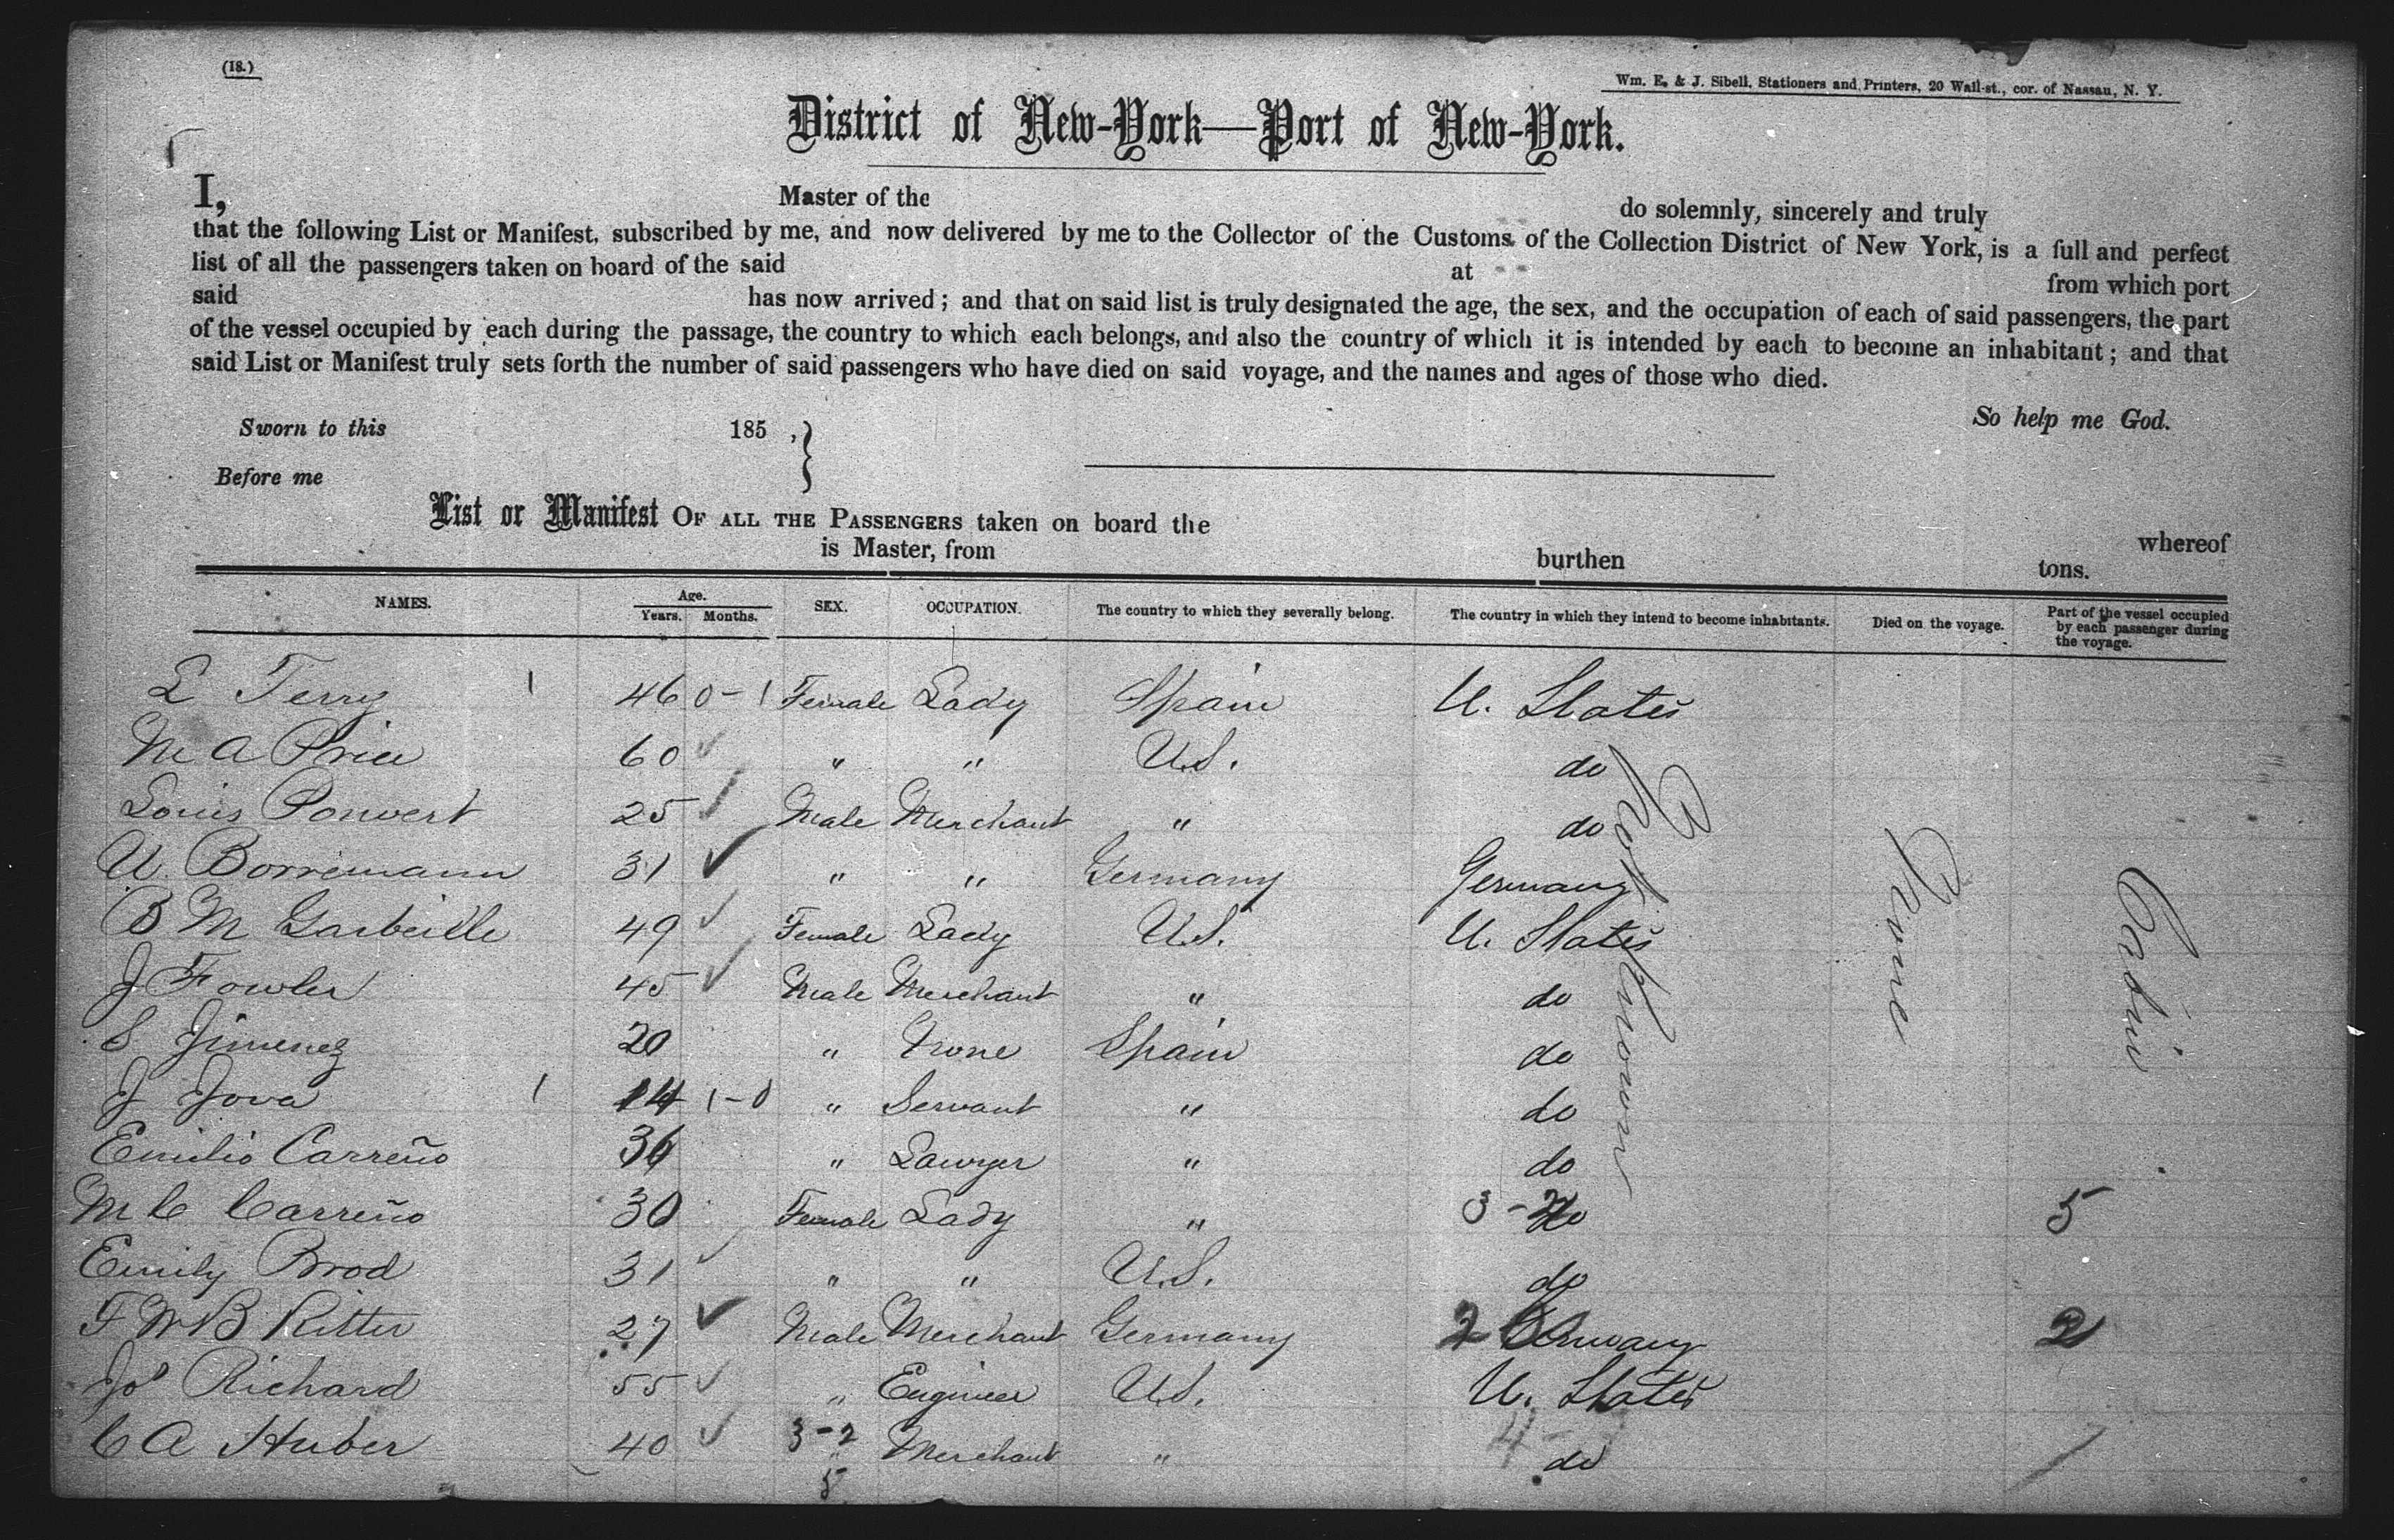 (18.)
Wm. E. & J. Sibell, Stationers and Printers, 20 Wall-st., cor. of Nassau, N. Y.
District of New-York—Port of New-York.
I, Master of the do solemnly, sincerely and truly
that the following List or Manifest, subscribed by me, and now delivered by me to the Collector of the Customs of the Collection District of New York, is a full and perfect
list of all the passengers taken on board of the said at from which port
said has now arrived; and that on said list is truly designated the age, the sex, and the occupation of each of said passengers, the part
of the vessel occupied by each during the passage, the country to which each belongs, and also the country of which it is intended by each to become an inhabitant; and that
said List or Manifest truly sets forth the number of said passengers who have died on said voyage, and the names and ages of those who died.
So help me God.
Sworn to this 185 ,
Before me
List or Manifest OF ALL THE PASSENGERS taken on board the whereof
is Master, from burthen tons.
NAMES. Age. Years. Months. SEX. OCCUPATION. The country to which they severally belong. The country in which they intend to become inhabitants. Died on the voyage. Part of the vessel occupied by each passenger during the voyage.
L Terry 1 46 0-1 Female Lady Spain U. States
M A Price 60 " " U.S. do
Louis Ponvert 25 Male Merchant " do
U. Borremann 31 " " Germany Germany
B M Garbeille 49 Female Lady U.S. U. States
J Fowler 45 Male Merchant " do
S Jimenez 20 " None Spain do
J Jova 1 14 1-0 " Servant " do
Emilio Carreño 36 " Lawyer " do
M C Carreño 30 Female Lady " 3-2 do 5
Emily Brod 31 " " U.S. do
F W B Ritter 27 Male Merchant Germany 2 Germany 2
Jos Richard 55 " Engineer U.S. U. States
C A Huber 40 3-2 " Merchant " 4- do
5
Not Known
None
Cabin